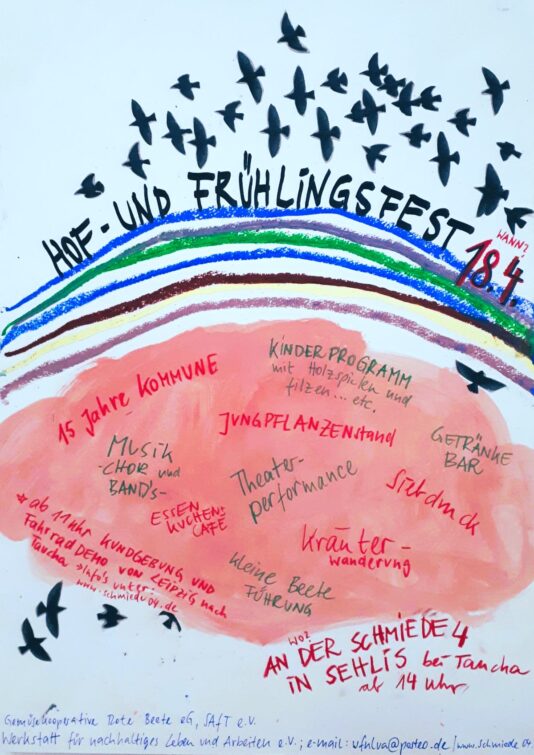 HOF- UND FRÜHLINGSFEST
WANN?
18.4.
15 Jahre KOMMUNE
KINDERPROGRAMM
mit Holzspielen und
filzen... etc.
JUNGPFLANZENstand
GETRÄNKE
BAR
MUSIK
-CHOR und
BAND's-
Theater-
performance
Siebdruck
ESSEN
KUCHEN:
CAFÉ
Kräuter-
wanderung
* ab 11 Uhr KUNDGEBUNG UND
FahrradDEMO von LEIPZIG nach
Taucha → Info's unter:
www.schmiede04.de
kleine Beete
FÜHRUNG
WO?
AN DER SCHMIEDE 4
IN SEHLIS bei Taucha
ab 14 Uhr
Gemüsekooperative Rote Beete eG, SAfT e.V.
Werkstatt für nachhaltiges Leben und Arbeiten e.V.; e-mail: wfnlua@posteo.de / www.schmiede04